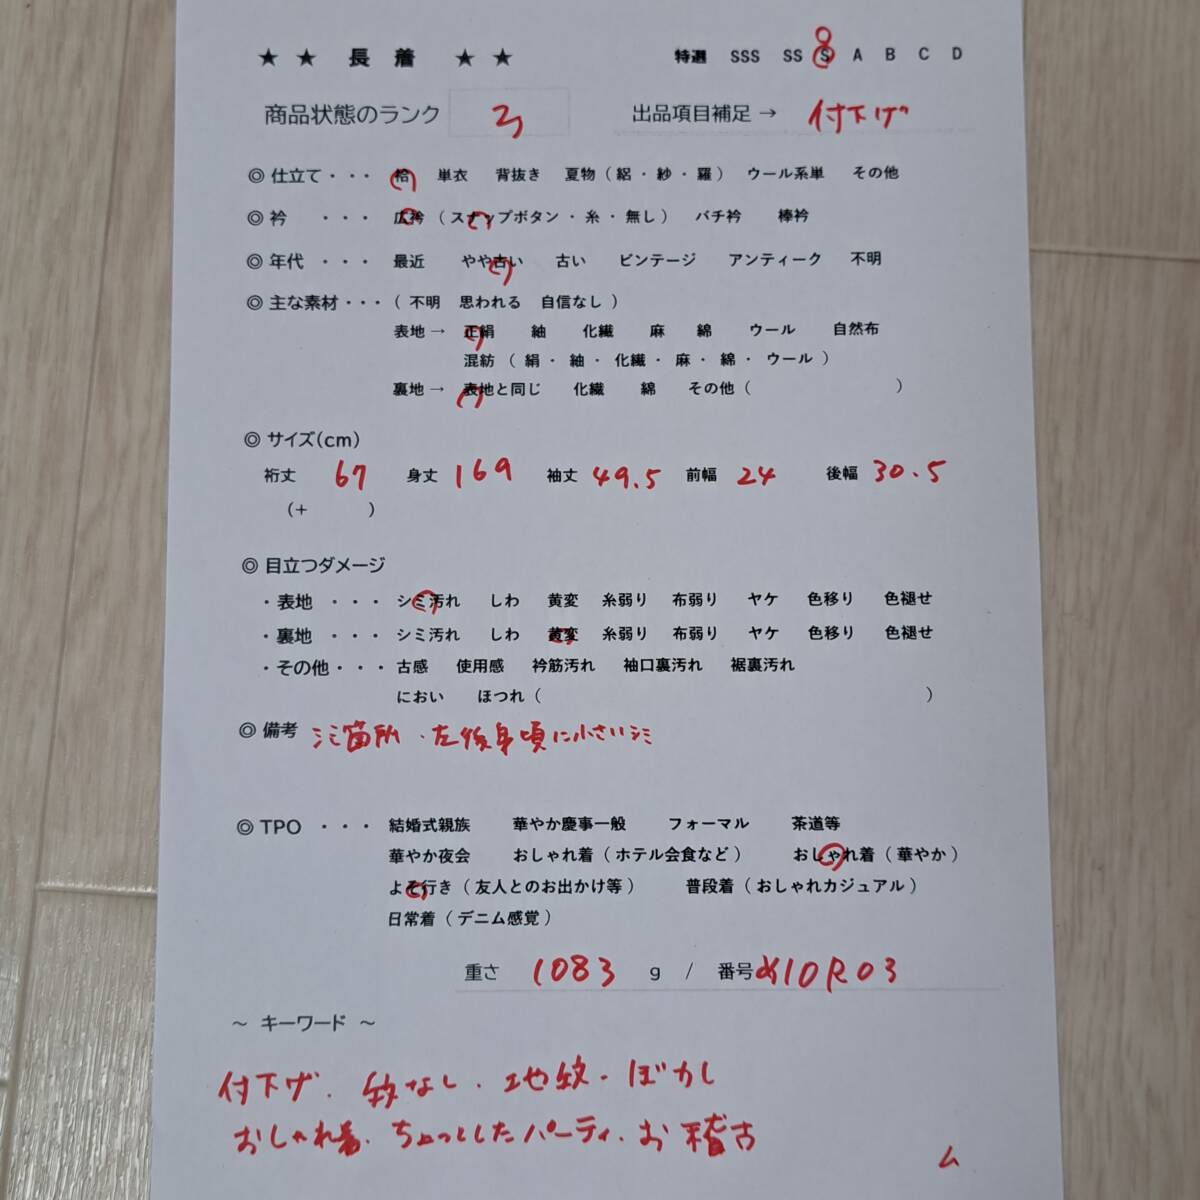 ★ ★ 長 着 ★ ★ 特選 SSS SS S A B C D
商品状態のランク 3 出品項目補足→ 付下げ
◎ 仕立て・・・ 袷 単衣 背抜き 夏物(絽・紗・羅) ウール系単 その他
◎ 衿 ・・・ 広衿(スナップボタン・糸・無し) バチ衿 棒衿
◎ 年代 ・・・ 最近 やや古い 古い ビンテージ アンティーク 不明
◎ 主な素材・・・(不明 思われる 自信なし)
表地→ 正絹 紬 化繊 麻 綿 ウール 自然布
混紡(絹・紬・化繊・麻・綿・ウール)
裏地→ 表地と同じ 化繊 綿 その他( )
◎ サイズ(cm)
裄丈 67 身丈 169 袖丈 49.5 前幅 24 後幅 30.5
(+ )
◎ 目立つダメージ
・表地 ・・・ シミ汚れ しわ 黄変 糸弱り 布弱り ヤケ 色移り 色褪せ
・裏地 ・・・ シミ汚れ しわ 黄変 糸弱り 布弱り ヤケ 色移り 色褪せ
・その他・・・ 古感 使用感 衿筋汚れ 袖口裏汚れ 裾裏汚れ
におい ほつれ( )
◎ 備考 シミ箇所・左後身頃に小さいシミ
◎ TPO ・・・ 結婚式親族 華やか慶事一般 フォーマル 茶道等
華やか夜会 おしゃれ着(ホテル会食など) おしゃれ着(華やか)
よそ行き(友人とのお出かけ等) 普段着(おしゃれカジュアル)
日常着(デニム感覚)
重さ 1083 g / 番号 め10R03
～ キーワード ～
付下げ・紋なし・地紋・ぼかし
おしゃれ着・ちょっとしたパーティ・お稽古
ム